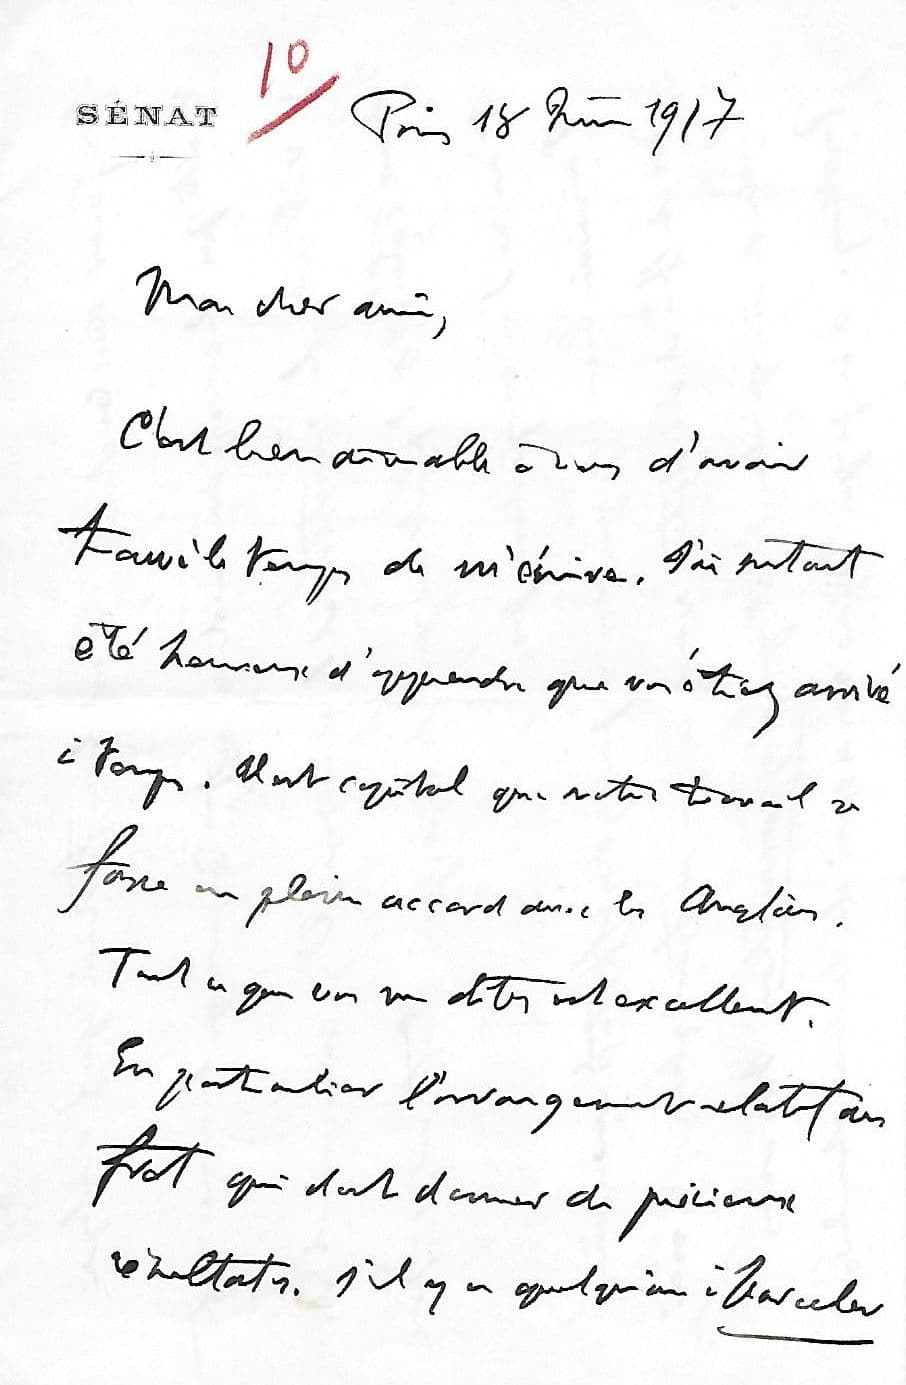 10
SÉNAT
Paris 18 Juin 1917
Mon cher ami,
C'est bien aimable à vous d'avoir
trouvé le temps de m'écrire. J'ai surtout
été heureux d'apprendre que vous étiez arrivé
à temps. Il est capital que notre travail se
fasse en plein accord avec les Anglais.
Tout ce que vous me dites est excellent.
En particulier l'arrangement relatif au
fret qui doit donner de précieux
résultats. S'il y a quelqu'un à harceler